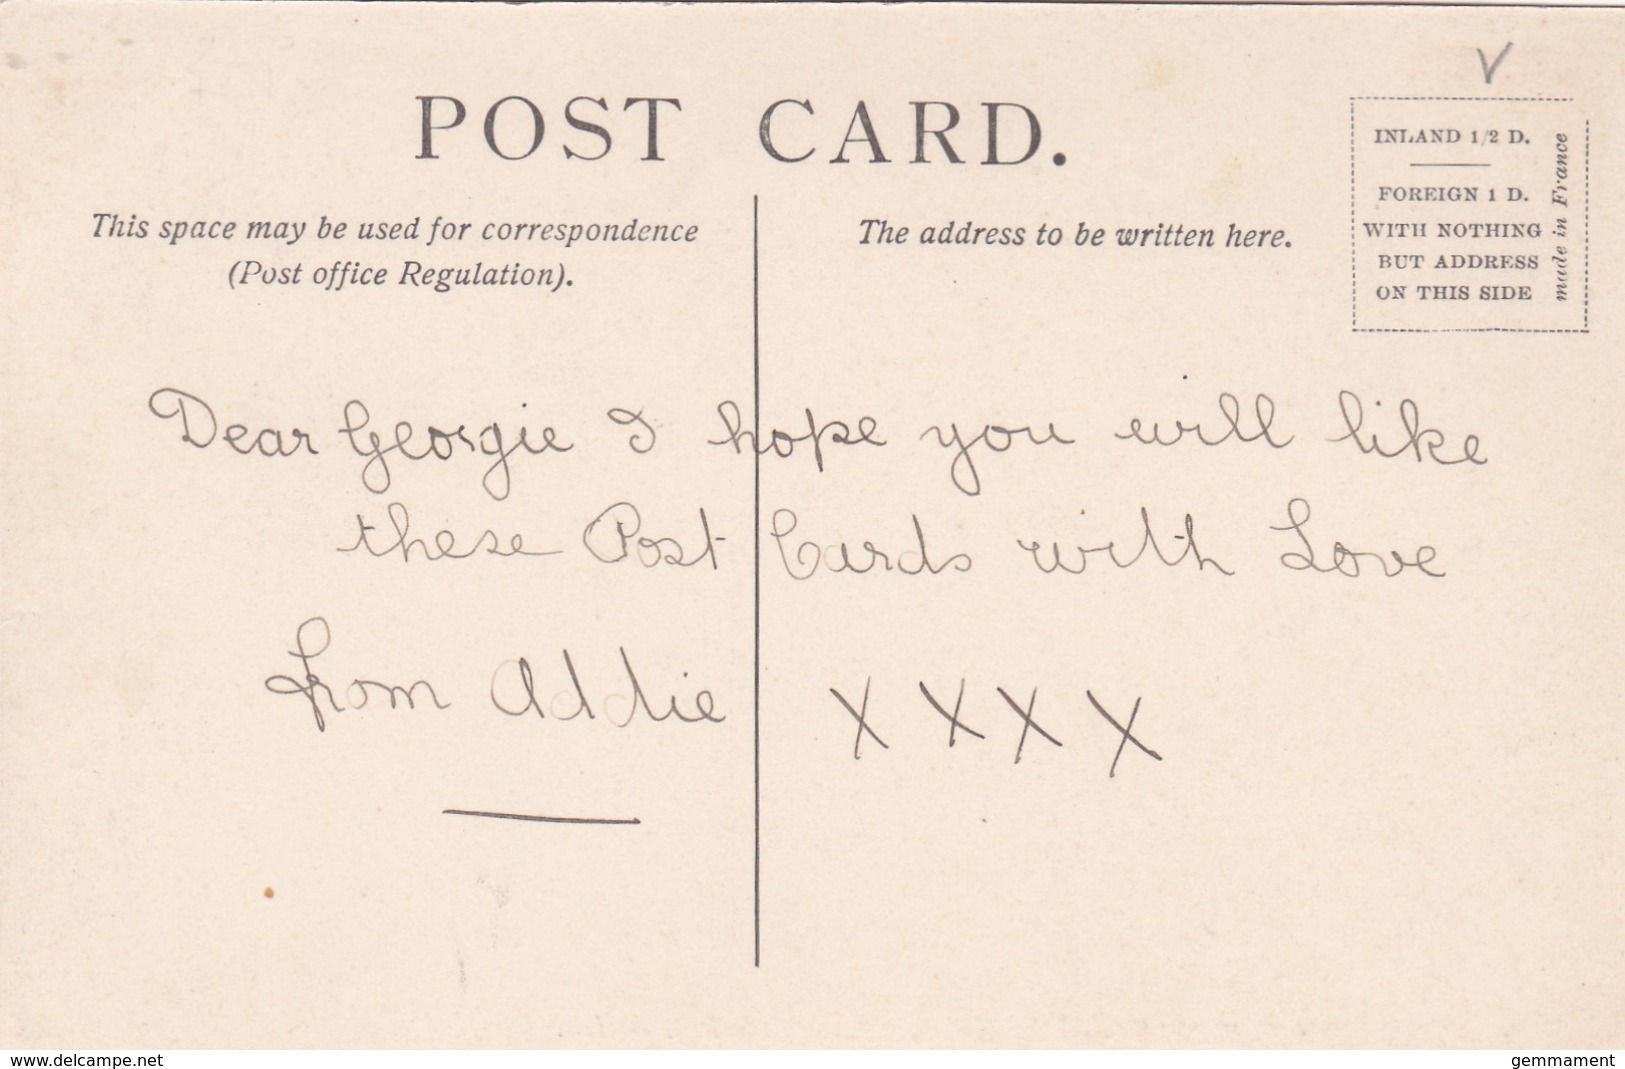 POST CARD.
This space may be used for correspondence
(Post office Regulation).
The address to be written here.
INLAND 1/2 D.
FOREIGN 1 D.
WITH NOTHING
BUT ADDRESS
ON THIS SIDE
made in France
Dear Georgie I hope you will like
these Post Cards with Love
from Addie X X X X
www.delcampe.net
gemmament